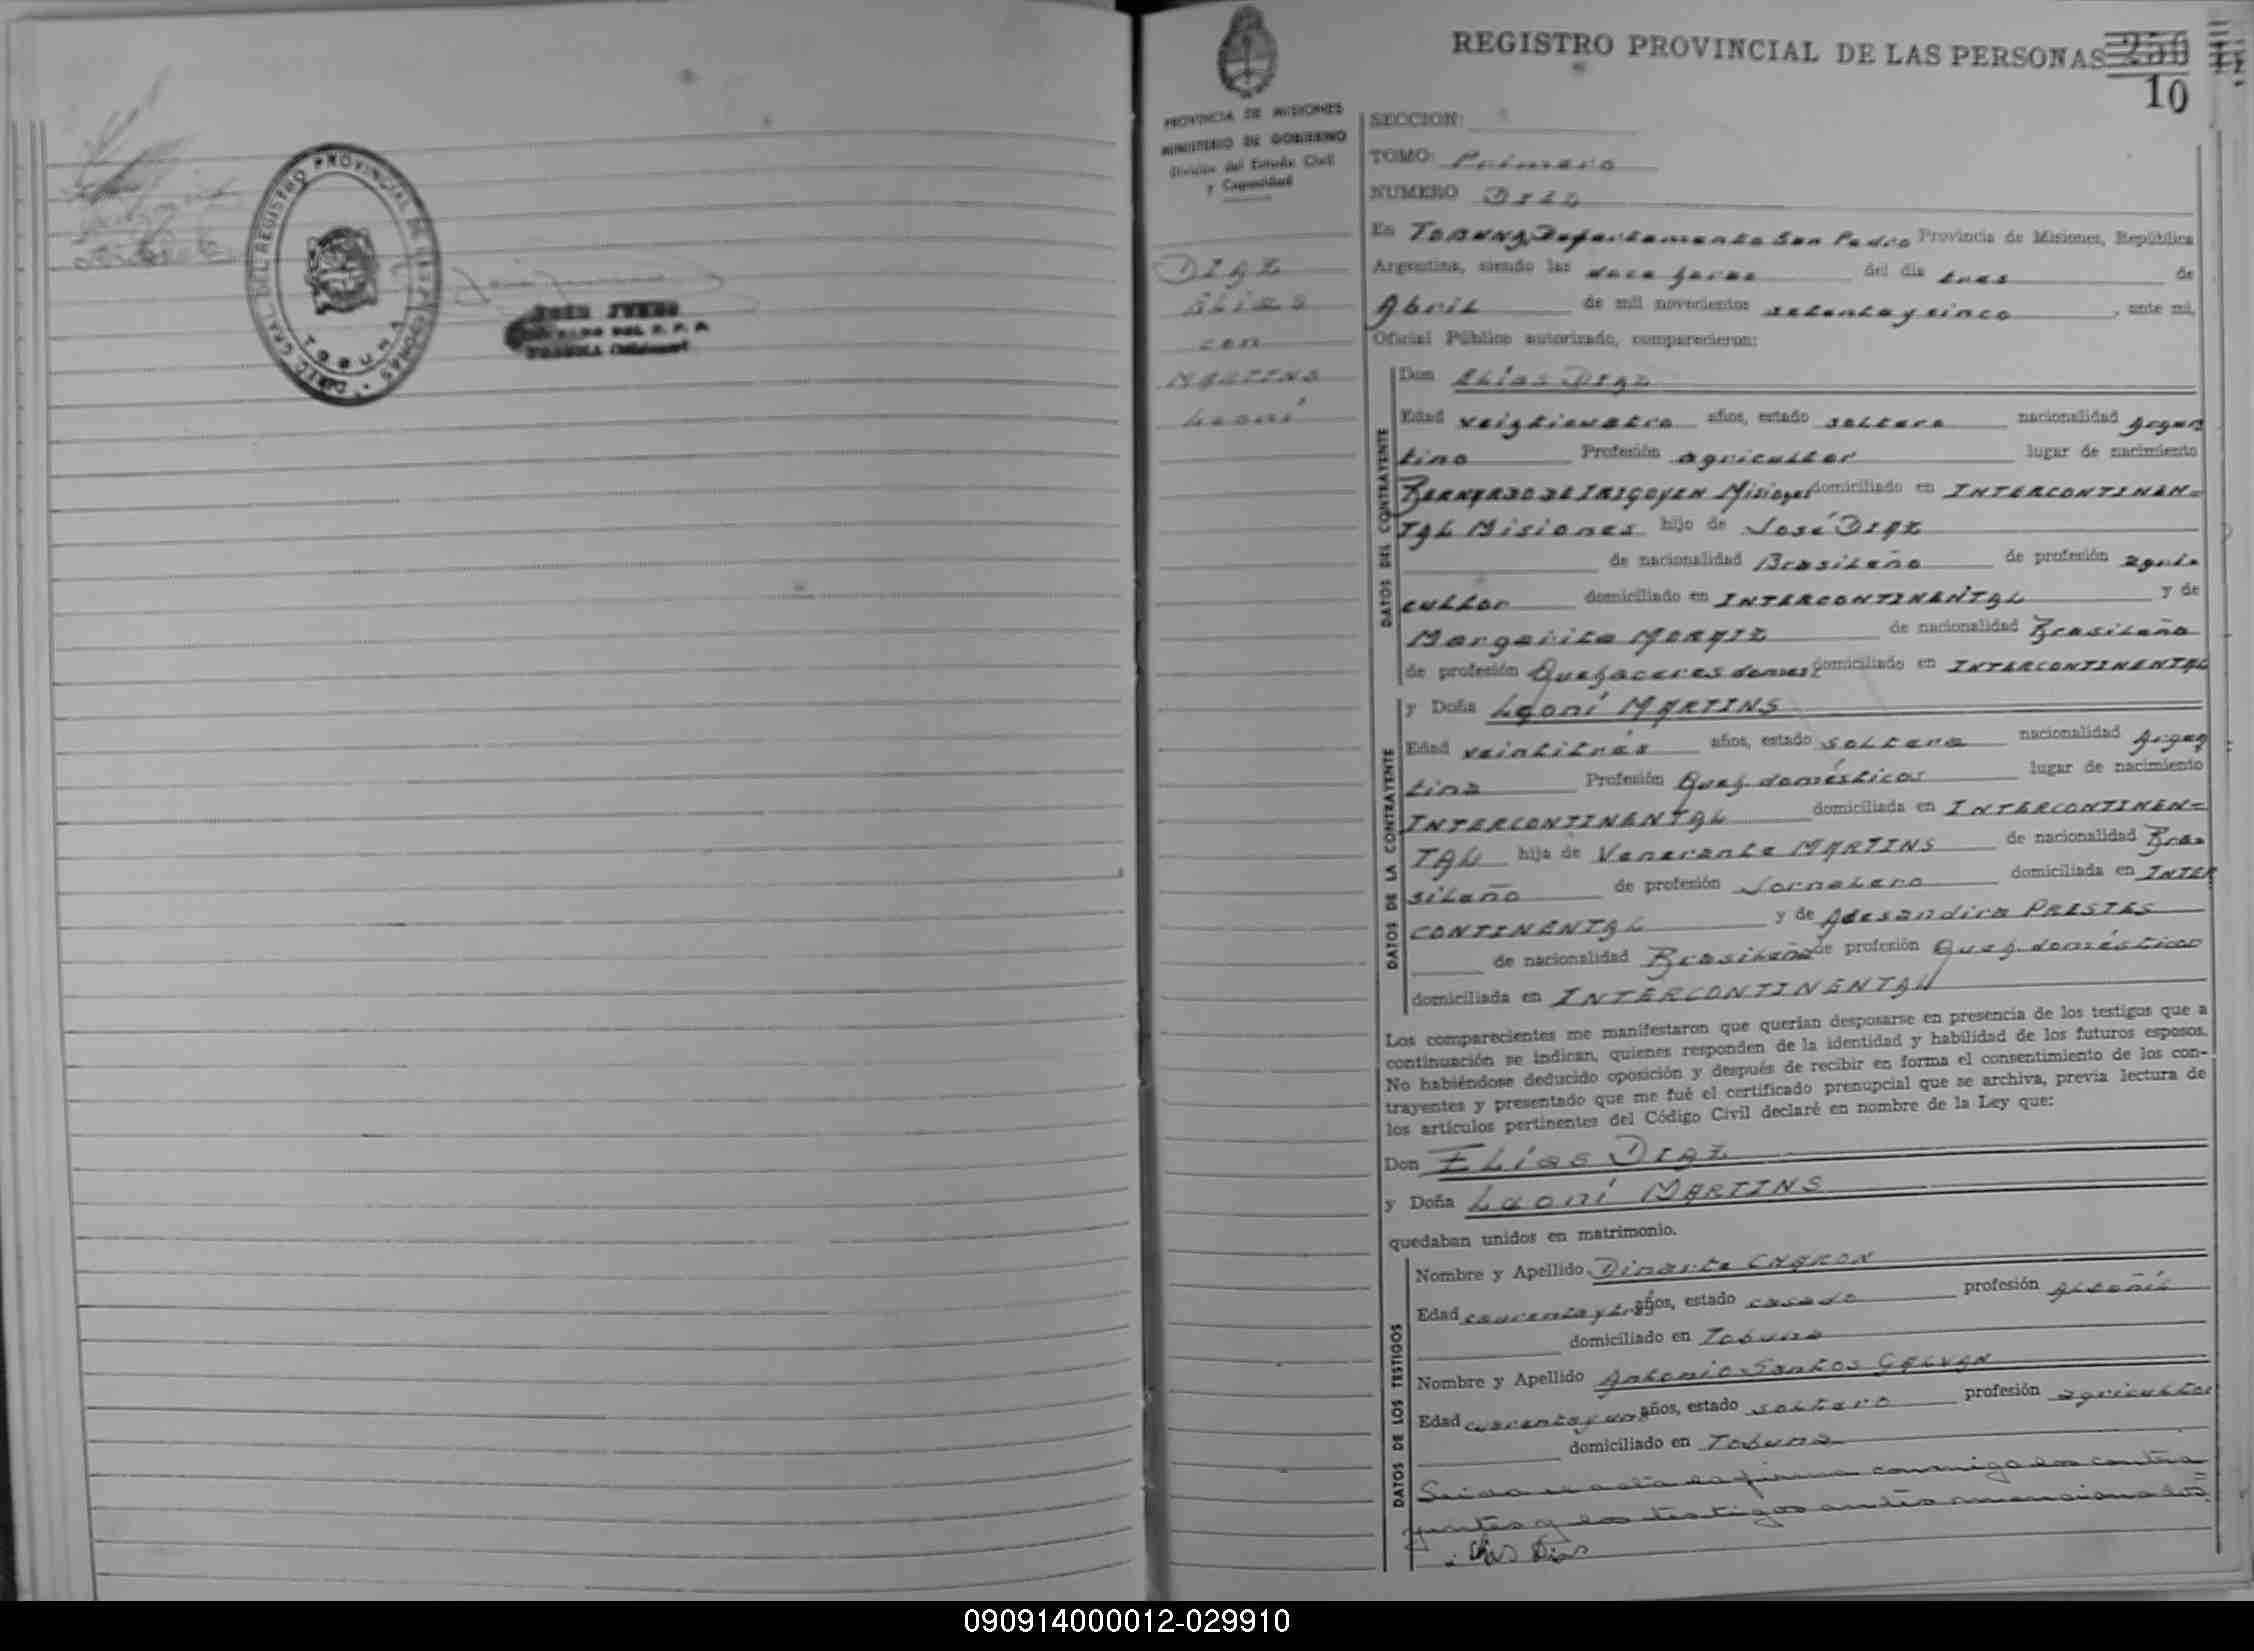 DIREC. GRAL. DEL REGISTRO PROVINCIAL DE LAS PERSONAS
TOBUNA
REGISTRO PROVINCIAL DE LAS PERSONAS 250
10
PROVINCIA DE MISIONES
MINISTERIO DE GOBIERNO
División del Estado Civil
y Capacidad
DIAZ
Elías
con
MARTINS
Leoní
SECCION:
TOMO: Primero
NUMERO Diez
En TOBUNA, Departamento San Pedro Provincia de Misiones, República
Argentina, siendo las doce horas del día tres de
Abril de mil novecientos setenta y cinco, ante mí,
Oficial Público autorizado, comparecieron:
DATOS DEL CONTRAYENTE
Don Elías DIAZ
Edad veinticuatro años, estado soltero nacionalidad Argen
tino Profesión agricultor lugar de nacimiento
BERNARDO DE IRIGOYEN Misiones domiciliado en INTERCONTINEN=
TAL Misiones hijo de José DIAZ
de nacionalidad Brasileño de profesión agri
cultor domiciliado en INTERCONTINENTAL y de
Margarita de nacionalidad Brasileña
de profesión Quehaceres domest. domiciliado en INTERCONTINENTAL
DATOS DE LA CONTRAYENTE
y Doña Leoní MARTINS
Edad veintitrés años, estado soltera nacionalidad Argen
tina Profesión Queh. domésticos lugar de nacimiento
INTERCONTINENTAL domiciliada en INTERCONTINEN=
TAL hija de Venerante MARTINS de nacionalidad Bra
sileño de profesión Jornalero domiciliada en INTER
CONTINENTAL y de PRESTES
de nacionalidad Brasileña de profesión Queh. domésticos
domiciliada en INTERCONTINENTAL
Los comparecientes me manifestaron que querían desposarse en presencia de los testigos que a
continuación se indican, quienes responden de la identidad y habilidad de los futuros esposos.
No habiéndose deducido oposición y después de recibir en forma el consentimiento de los con-
trayentes y presentado que me fué el certificado prenupcial que se archiva, previa lectura de
los artículos pertinentes del Código Civil declaré en nombre de la Ley que:
Don Elías DIAZ
y Doña Leoní MARTINS
quedaban unidos en matrimonio.
DATOS DE LOS TESTIGOS
Nombre y Apellido Dinarte CHARON
Edad años, estado casado profesión Albañil
domiciliado en Tobuna
Nombre y Apellido Antonio Santos GALVAN
Edad cuarenta y un años, estado soltero profesión agricultor
domiciliado en Tobuna
Leida el acta la firma conmigo los contra
yentes y los testigos antes mencionados.
Elias Dias
090914000012-029910